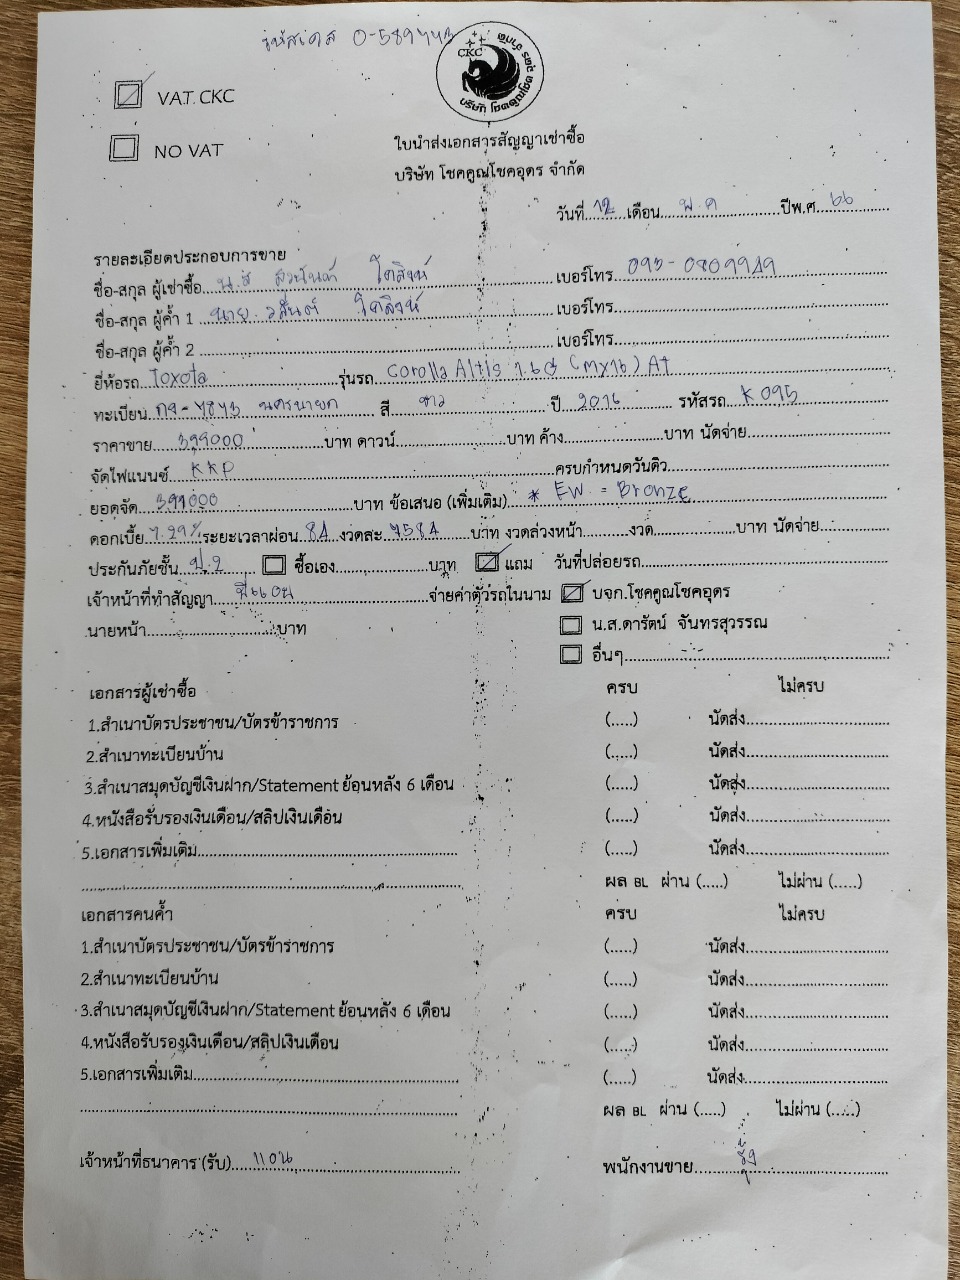 รหัสเคส 0-589443
CKC
บริษัท โชคคูณโชคอุดร จำกัด
VAT CKC
NO VAT
ใบนำส่งเอกสารสัญญาเช่าซื้อ
บริษัท โชคคูณโชคอุดร จำกัด
วันที่ 12 เดือน พ.ค ปีพ.ศ. 66
รายละเอียดประกอบการขาย
ชื่อ-สกุล ผู้เช่าซื้อ น.ส โคสิงห์ เบอร์โทร. 095-0809949
ชื่อ-สกุล ผู้ค้ำ 1 นาย วสันต์ โคสิงห์ เบอร์โทร.
ชื่อ-สกุล ผู้ค้ำ 2 เบอร์โทร.
ยี่ห้อรถ Toyota รุ่นรถ Corolla Altis 1.6G (MY16) AT
ทะเบียน กจ-7873 นครนายก สี ขาว ปี 2016 รหัสรถ K095
ราคาขาย 399000 บาท ดาวน์ บาท ค้าง บาท นัดจ่าย
จัดไฟแนนซ์ KKP ครบกำหนดวันดิว
ยอดจัด 399000 บาท ข้อเสนอ (เพิ่มเติม) * EW = Bronze
ดอกเบี้ย 7.29% ระยะเวลาผ่อน 84 งวดละ 7584 บาท งวดล่วงหน้า งวด บาท นัดจ่าย
ประกันภัยชั้น ป.2 ซื้อเอง บาท แถม วันที่ปล่อยรถ
เจ้าหน้าที่ทำสัญญา พี่แอน จ่ายค่าตัวรถในนาม บจก.โชคคูณโชคอุดร
นายหน้า บาท น.ส.ดารัตน์ จันทรสุวรรณ
อื่นๆ
เอกสารผู้เช่าซื้อ ครบ ไม่ครบ
1.สำเนาบัตรประชาชน/บัตรข้าราชการ (.....) นัดส่ง
2.สำเนาทะเบียนบ้าน (.....) นัดส่ง
3.สำเนาสมุดบัญชีเงินฝาก/Statement ย้อนหลัง 6 เดือน (.....) นัดส่ง
4.หนังสือรับรองเงินเดือน/สลิปเงินเดือน (.....) นัดส่ง
5.เอกสารเพิ่มเติม (.....) นัดส่ง
ผล BL ผ่าน (.....) ไม่ผ่าน (.....)
เอกสารคนค้ำ ครบ ไม่ครบ
1.สำเนาบัตรประชาชน/บัตรข้าราชการ (.....) นัดส่ง
2.สำเนาทะเบียนบ้าน (.....) นัดส่ง
3.สำเนาสมุดบัญชีเงินฝาก/Statement ย้อนหลัง 6 เดือน (.....) นัดส่ง
4.หนังสือรับรองเงินเดือน/สลิปเงินเดือน (.....) นัดส่ง
5.เอกสารเพิ่มเติม (.....) นัดส่ง
ผล BL ผ่าน (.....) ไม่ผ่าน (.....)
เจ้าหน้าที่ธนาคาร (รับ) แอน พนักงานขาย